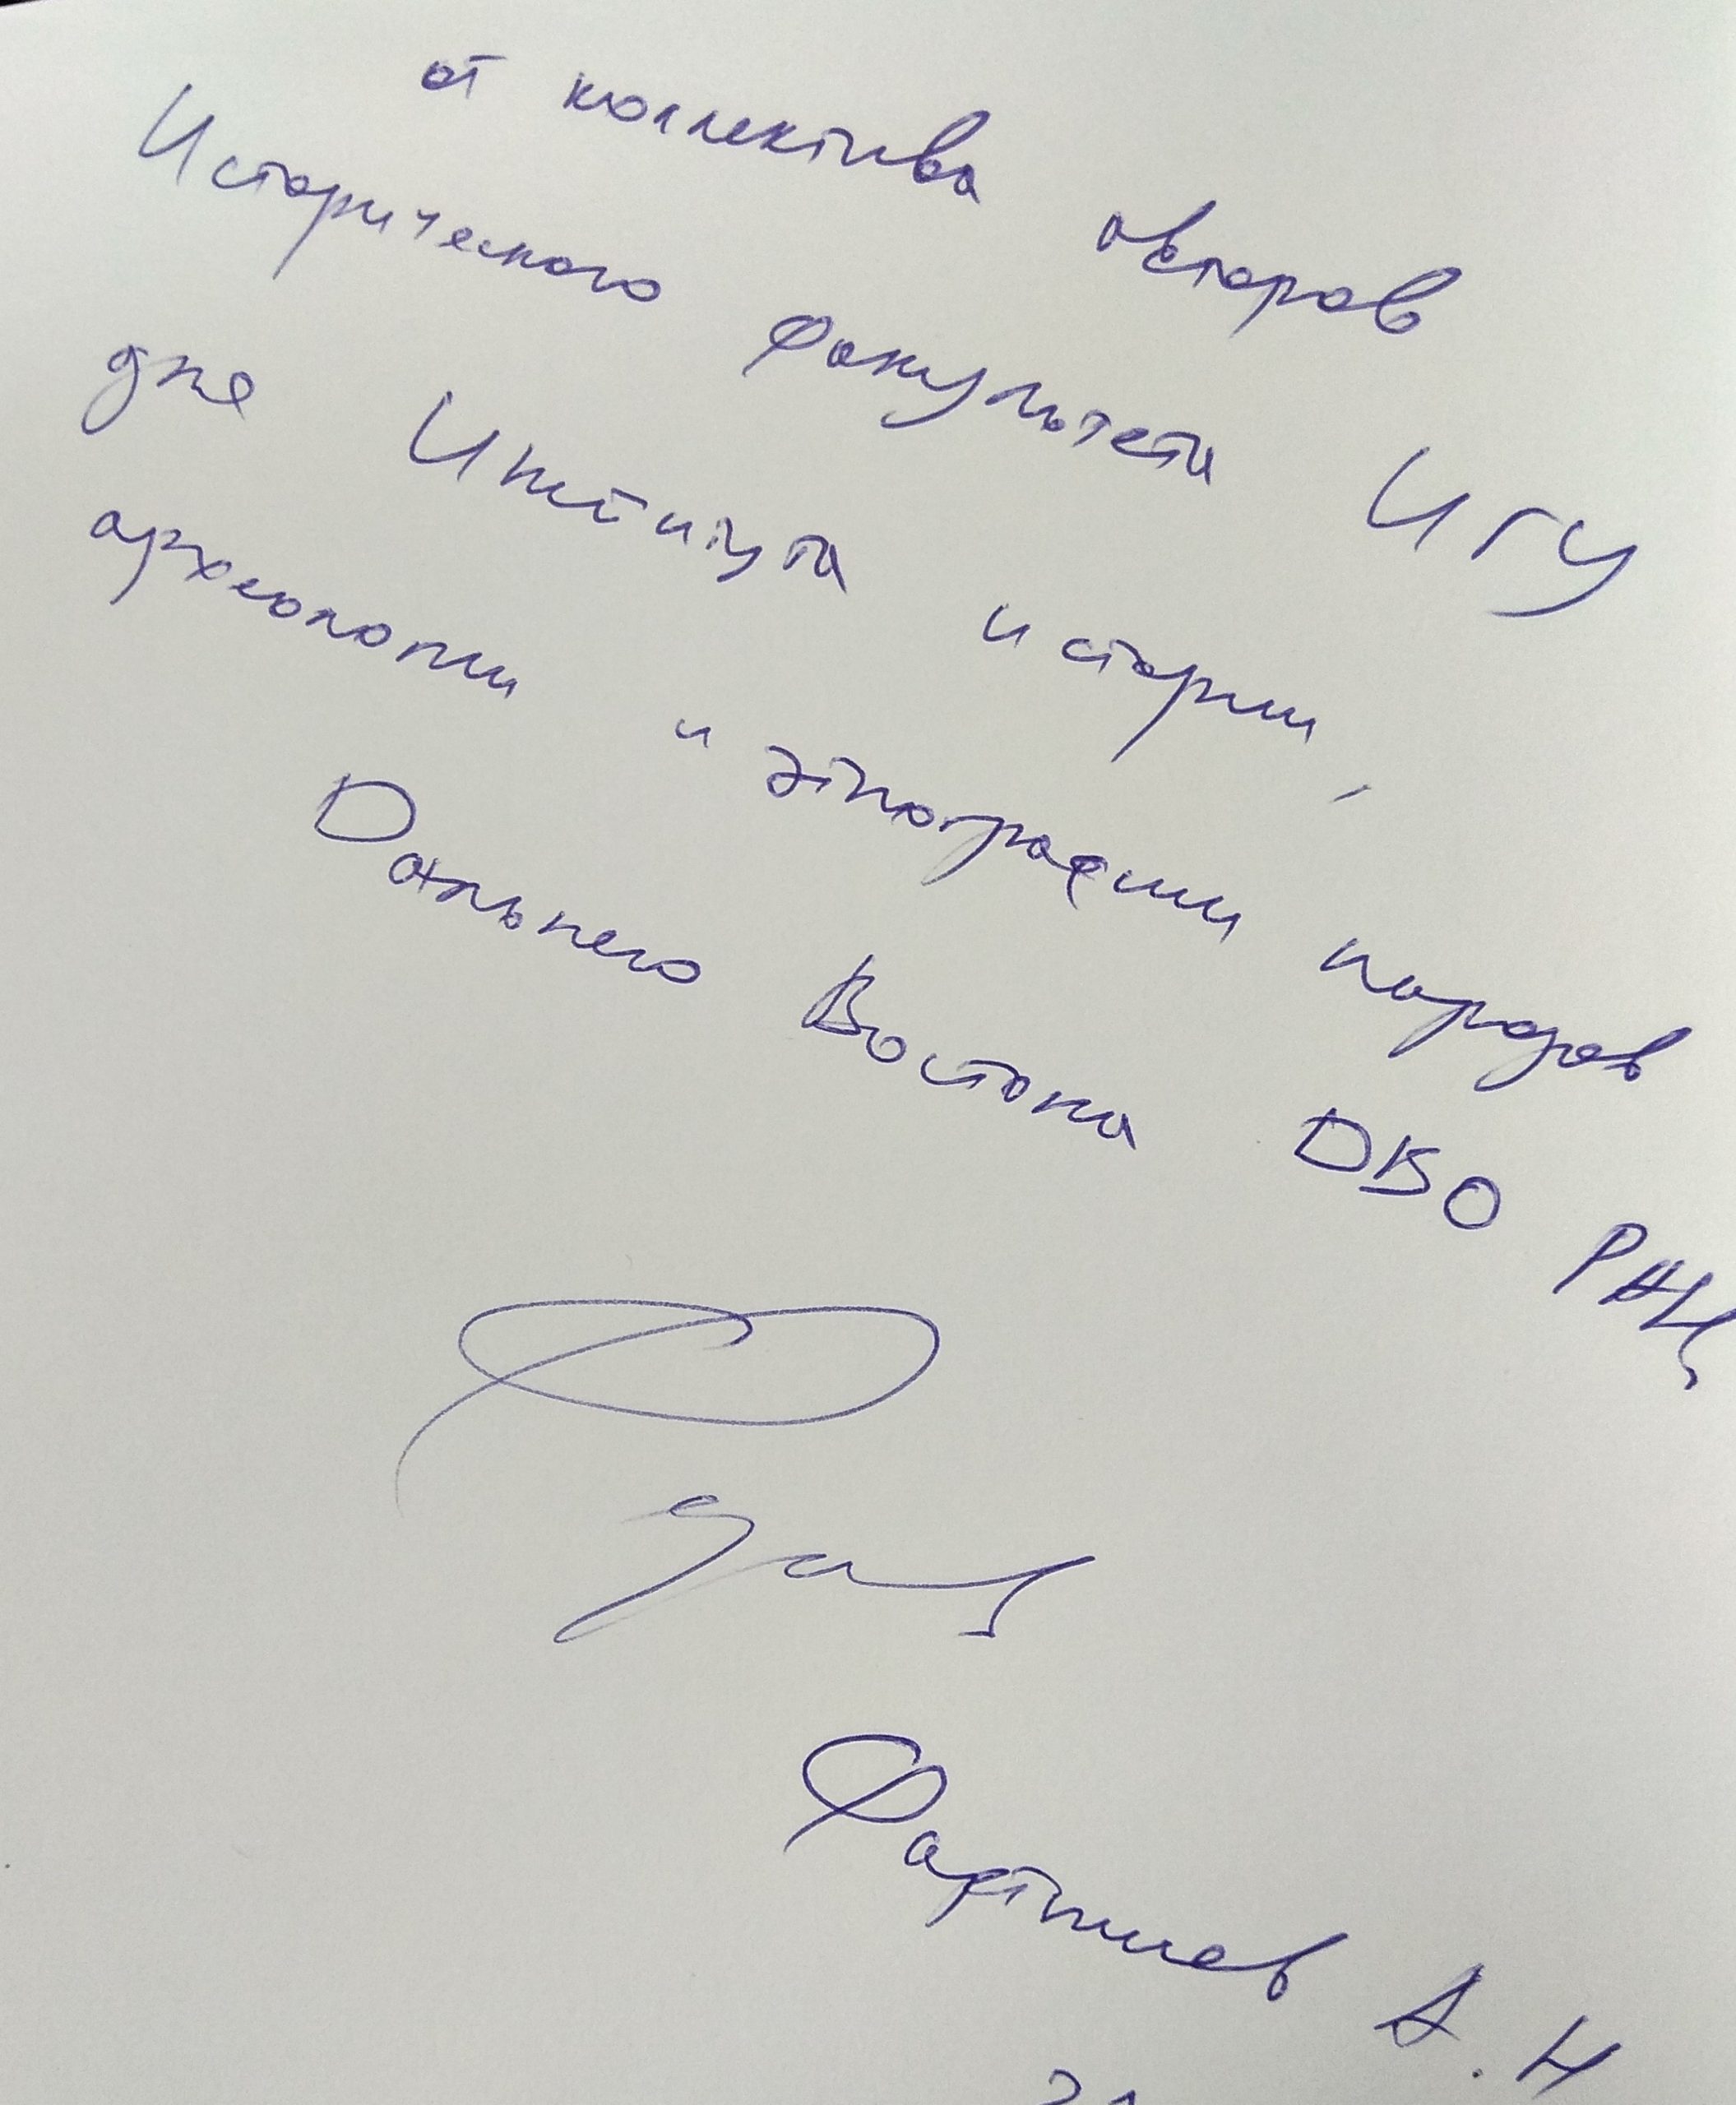 от коллектива авторов
Исторического факультета ИГУ
для Института истории,
археологии и этнографии народов
Дальнего Востока ДВО РАН
А.Н